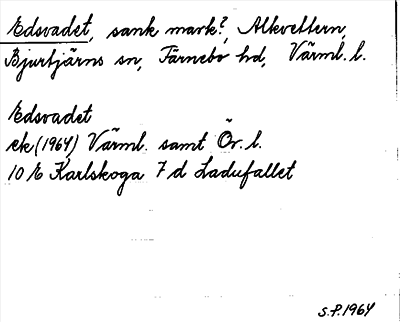 Edsvadet, sank mark?, Alkvettern,
Bjurtjärns sn, Färnebo hd, Värml. l.
Edsvadet
ek (1964) Värml. samt Ör. l.
10 E Karlskoga 7 d Ladufallet
S.P. 1964